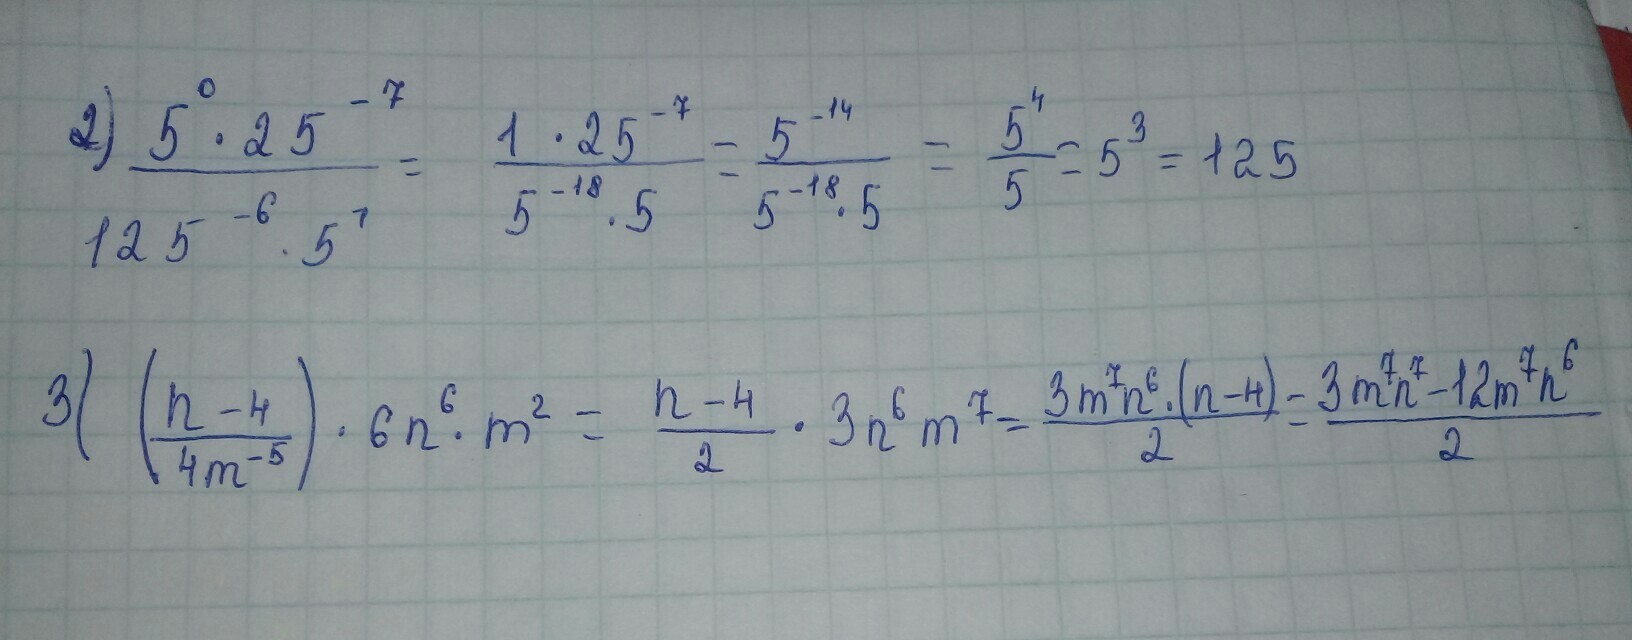 2) 5⁰ · 25⁻⁷ / 125⁻⁶ · 5¹ = 1 · 25⁻⁷ / 5⁻¹⁸ · 5 = 5⁻¹⁴ / 5⁻¹⁸ · 5 = 5⁴ / 5 = 5³ = 125
3) (n - 4 / 4m⁻⁵) · 6n⁶ · m² = n - 4 / 2 · 3n⁶m⁷ = 3m⁷n⁶ · (n - 4) / 2 = 3m⁷n⁷ - 12m⁷n⁶ / 2